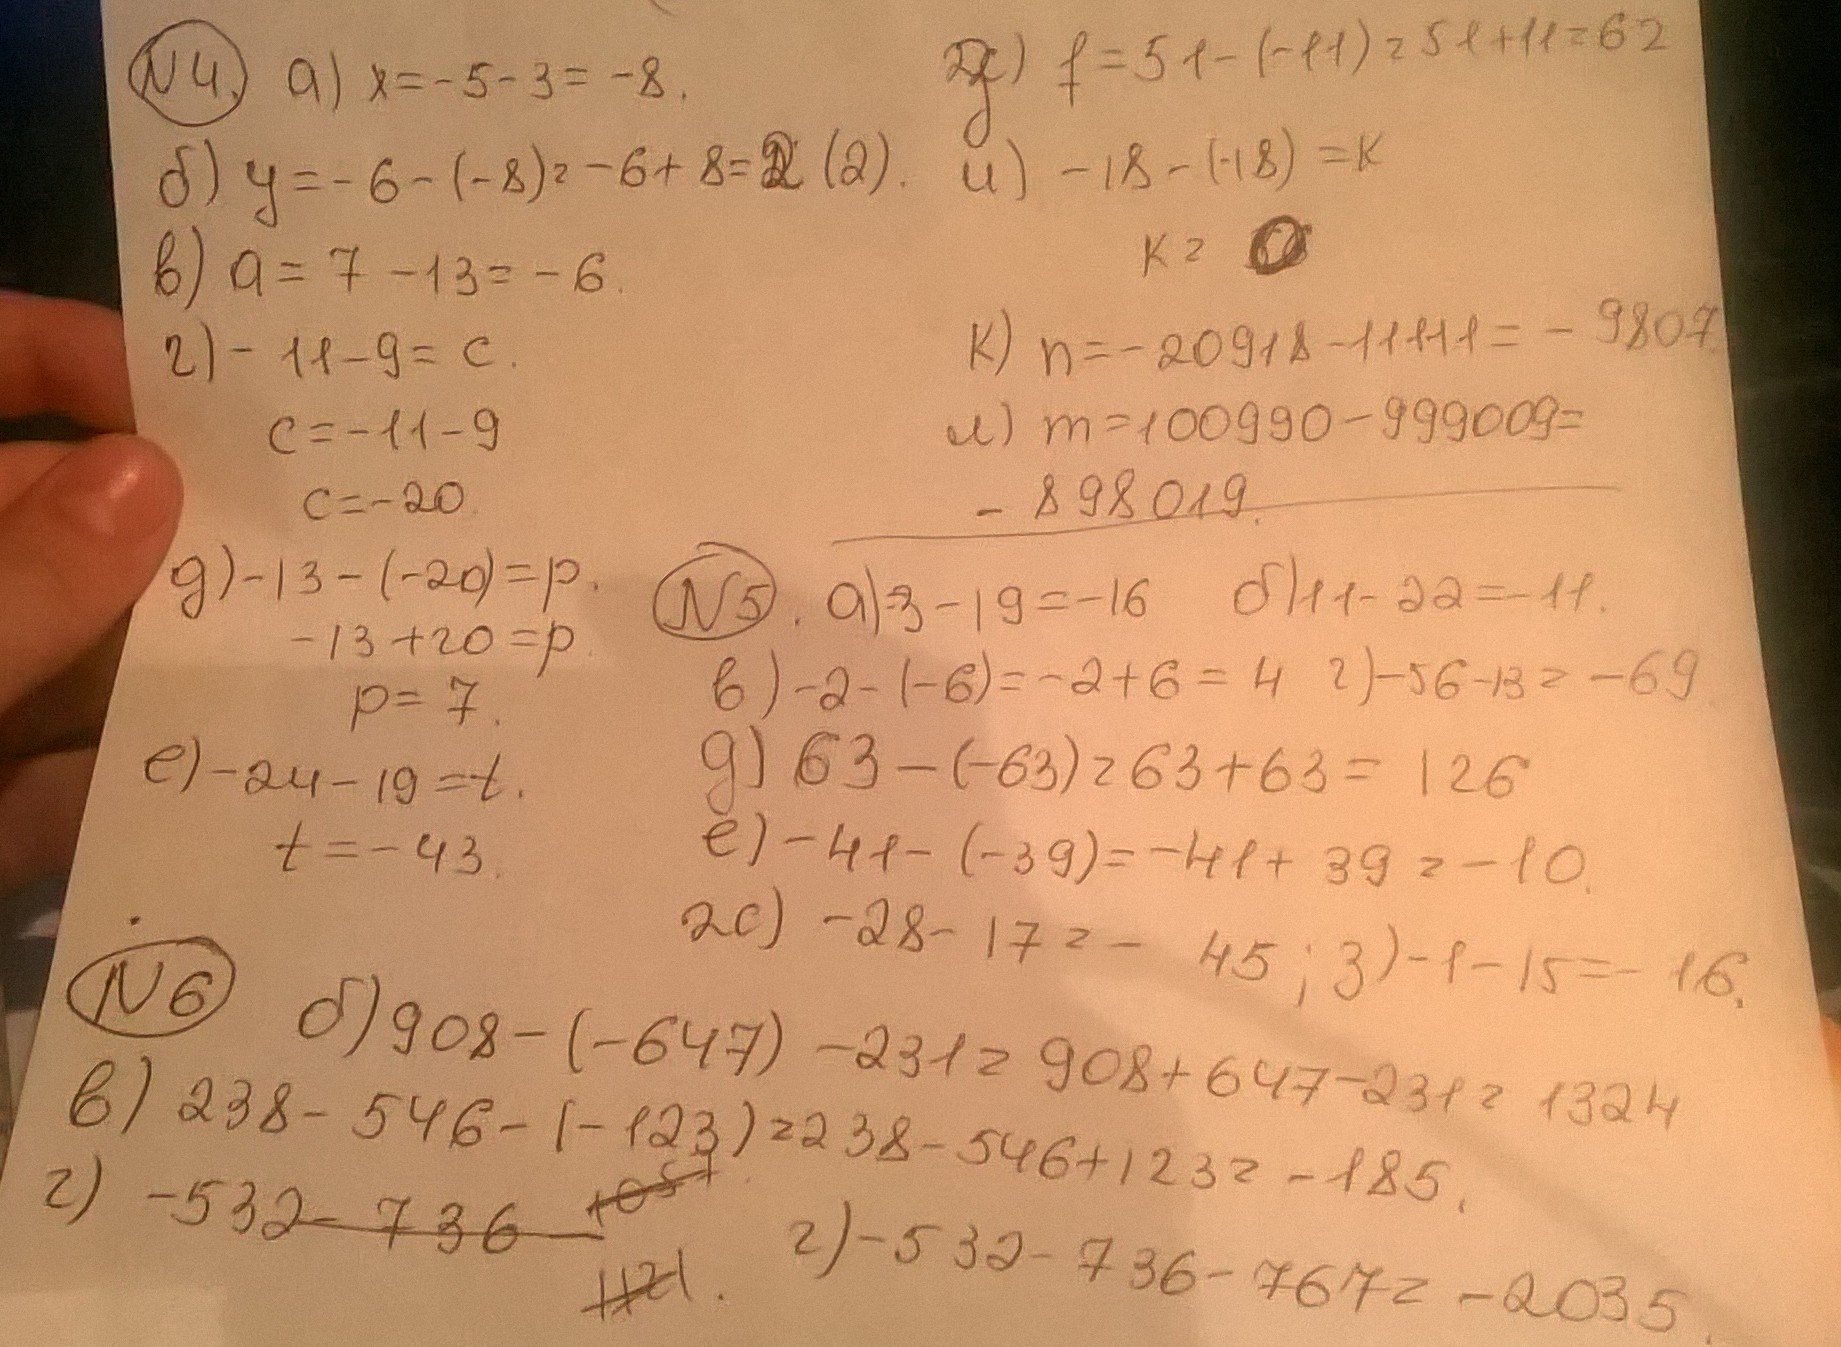 N4. а) x=-5-3=-8.
б) y=-6-(-8)=-6+8=2 (2).
в) a=7-13=-6.
г) -11-9=c.
c=-11-9
c=-20.
д) -13-(-20)=p.
-13+20=p.
p=7.
е) -24-19=t.
t=-43.
ж) f=51-(-11)=51+11=62
и) -18-(-18)=k
k=0
к) n=-20918-11111=-9807.
л) m=100990-999009=
-898019.
N5. а) 3-19=-16 б) 11-22=-11.
в) -2-(-6)=-2+6=4 г) -56-13=-69.
д) 63-(-63)=63+63=126
е) -41-(-39)=-41+39=-10.
ж) -28-17=-45; з) -1-15=-16.
N6 б) 908-(-647)-231=908+647-231=1324
в) 238-546-(-123)=238-546+123=-185.
г) -532-736-
1121.
г) -532-736-767=-2035.